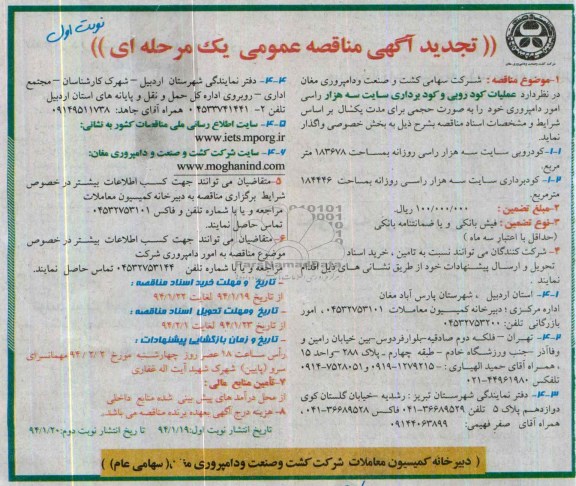 نوبت اول
(( تجدید آگهی مناقصه عمومی یک مرحله ای ))
۱-موضوع مناقصه : شرکت سهامی کشت و صنعت ودامپروری مغان
در نظردارد عملیات کود روبی و کود برداری سایت سه هزار راسی
امور دامپروری خود را به صورت حجمی برای مدت یکسال بر اساس
شرایط و مشخصات اسناد مناقصه بشرح ذیل به بخش خصوصی واگذار
نماید.
۱-۱-کودروبی سایت سه هزار راسی روزانه بمساحت ۱۸۳۶۷۸ متر
مربع.
۱-۲- کودبرداری سایت سه هزار راسی روزانه بمساحت ۱۸۴۴۴۶
مترمربع.
۲-مبلغ تضمین : ۱۰۰/۰۰۰/۰۰۰ ریال.
۳-نوع تضمین : فیش بانکی و یا ضمانتنامه بانکی
(حداقل با اعتبار سه ماه )
۴- شرکت کنندگان می توانند نسبت به تامین ، خرید اسناد
تحویل و ارسال پیشنهادات خود از طریق نشانی های ذیل اقدام
نمایند.
۴-۱- استان اردبیل ، شهرستان پارس آباد مغان
اداره مرکزی : دبیرخانه کمیسیون معاملات ۰۴۵۳۲۷۵۳۱۰۱ ، امور
بازرگانی تلفن: ۰۴۵۳۲۷۵۳۲۰۰
۴-۲- تهران – فلکه دوم صادقیه-بلوارفردوس-بین خیابان رامین و
وفاآذر -جنب ورزشگاه خادم -طبقه چهارم -پلاک ۲۸۸ -واحد ۱۵
، همراه آقای حمید الهیاری : ۱۲۷۹۲۱۵-۰۹۱۹ و ۷۵۲۸۰۵۱-۰۹۱۴
تلفکس ۴۴۹۶۱۹۸۰-۰۲۱
۴-۳- دفتر نمایندگی شهرستان تبریز : رشدیه -خیابان گلستان کوی
دوازدهم پلاک ۵ تلفن ۳۶۶۸۹۵۲۹-۰۴۱ فاکس ۳۶۶۸۹۵۲۸-۰۴۱ ،
همراه آقای صفر فهیمی: ۰۹۱۴۴۰۶۳۸۹۹
۴-۴- دفتر نمایندگی شهرستان اردبیل – شهرک کارشناسان – مجتمع
اداری – روبروی اداره کل حمل و نقل و پایانه های استان اردبیل
تلفن ۲- ۰۴۵۳۳۷۴۱۴۴۱ همراه آقای جاهد: ۰۹۱۴۹۵۱۱۷۳۸
۴-۵- سایت اطلاع رسانی ملی مناقصات کشور به نشانی:
www.iets.mporg.ir
۴-۶- سایت شرکت کشت و صنعت و دامپروری مغان:
www.moghanind.com
۵-متقاضیان می توانند جهت کسب اطلاعات بیشتر در خصوص
شرایط برگزاری مناقصه به دبیرخانه کمیسیون معاملات
مراجعه و یا با شماره تلفن و فاکس ۰۴۵۳۲۷۵۳۱۰۱
تماس حاصل نمایند.
۶-متقاضیان می توانند جهت کسب اطلاعات بیشتر در خصوص
موضوع مناقصه به امور دامپروری شرکت
مراجعه و یا با شماره تلفن ۰۴۵۳۲۷۵۳۱۴۴ تماس حاصل نمایند.
- تاریخ و مهلت خرید اسناد مناقصه :
از تاریخ ۹۴/۱/۱۹ لغایت ۹۴/۱/۲۲
- تاریخ ومهلت تحویل اسناد مناقصه :
از تاریخ ۹۴/۱/۲۳ لغایت ۹۴/۲/۱
- تاریخ و زمان بازگشایی پیشنهادات :
رأس ساعت ۱۸ عصر روز چهارشنبه مورخ ۹۴/۲/۲ مهمانسرای
سرو (پایین) شهرک شهید آیت اله غفاری
۷-تأمین منابع مالی :
از محل درآمد های پیش بینی شده منابع داخلی
۸- هزینه درج آگهی بعهده برنده مناقصه می باشد.
تاریخ انتشار نوبت اول: ۹۴/۱/۱۹ تا ریخ انتشار نوبت دوم: ۹۴/۱/۲۰
( دبیرخانه کمیسیون معاملات شرکت کشت وصنعت ودامپروری (سهامی عام) )